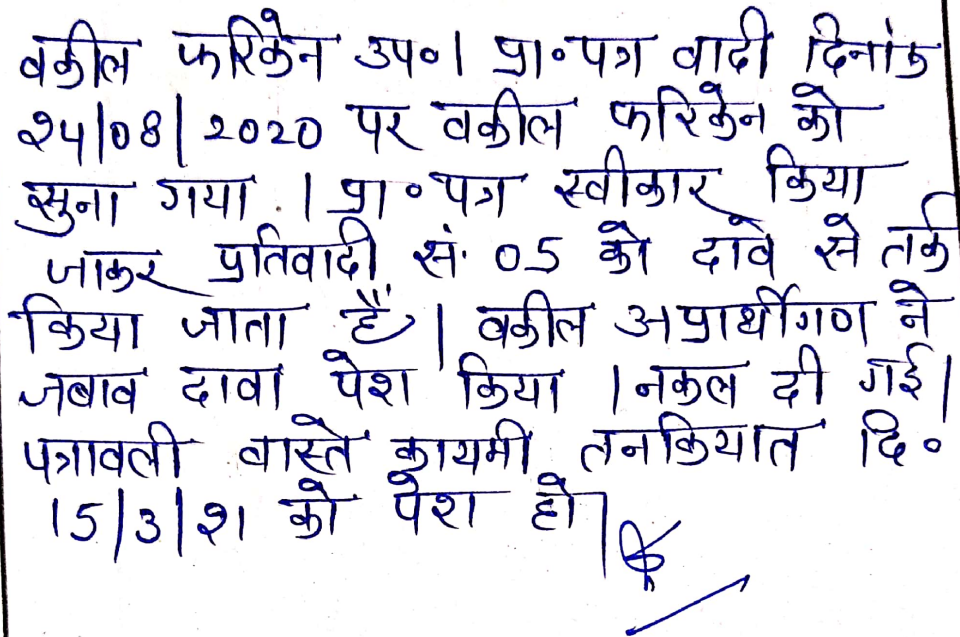 वकील फरिकेन उप०। प्रा०पत्र वादी दिनांक
24/08/2020 पर वकील फरिकेन को
सुना गया । प्रा०पत्र स्वीकार किया
जाकर प्रतिवादी सं. 05 को दावे से तर्क
किया जाता हैं। वकील अप्रार्थीगण ने
जबाव दावा पेश किया । नकल दी गई।
पत्रावली वास्ते कायमी तनकियात दि०
15/3/21 को पेश हो।